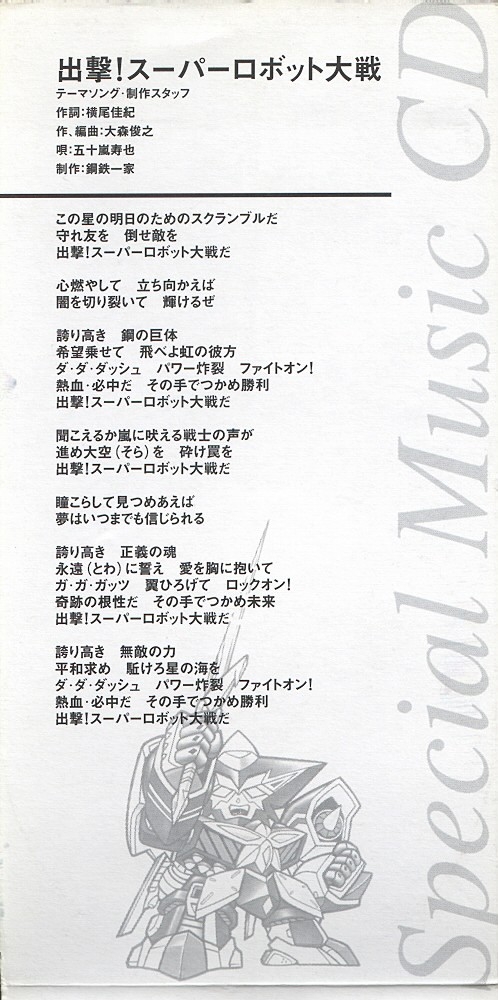 出撃!スーパーロボット大戦
テーマソング・制作スタッフ
作詞:横尾佳紀
作、編曲:大森俊之
唄:五十嵐寿也
制作:鋼鉄一家
この星の明日のためのスクランブルだ
守れ友を　倒せ敵を
出撃!スーパーロボット大戦だ
心燃やして　立ち向かえば
闇を切り裂いて　輝けるぜ
誇り高き　鋼の巨体
希望乗せて　飛べよ虹の彼方
ダ・ダ・ダッシュ　パワー炸裂　ファイトオン!
熱血・必中だ　その手でつかめ勝利
出撃!スーパーロボット大戦だ
聞こえるか嵐に吠える戦士の声が
進め大空(そら)を　砕け罠を
出撃!スーパーロボット大戦だ
瞳こらして見つめあえば
夢はいつまでも信じられる
誇り高き　正義の魂
永遠(とわ)に誓え　愛を胸に抱いて
ガ・ガ・ガッツ　翼ひろげて　ロックオン!
奇跡の根性だ　その手でつかめ未来
出撃!スーパーロボット大戦だ
誇り高き　無敵の力
平和求め　駈けろ星の海を
ダ・ダ・ダッシュ　パワー炸裂　ファイトオン!
熱血・必中だ　その手でつかめ勝利
出撃!スーパーロボット大戦だ
Special Music CD